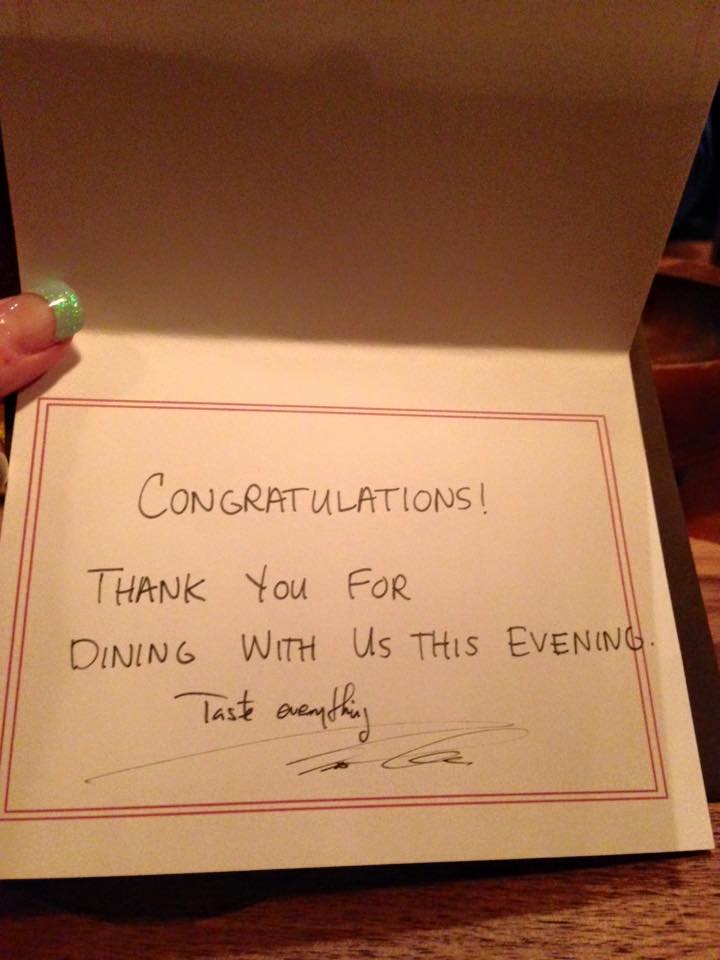 CONGRATULATIONS!
THANK YOU FOR
DINING WITH US THIS EVENING.
Taste everything